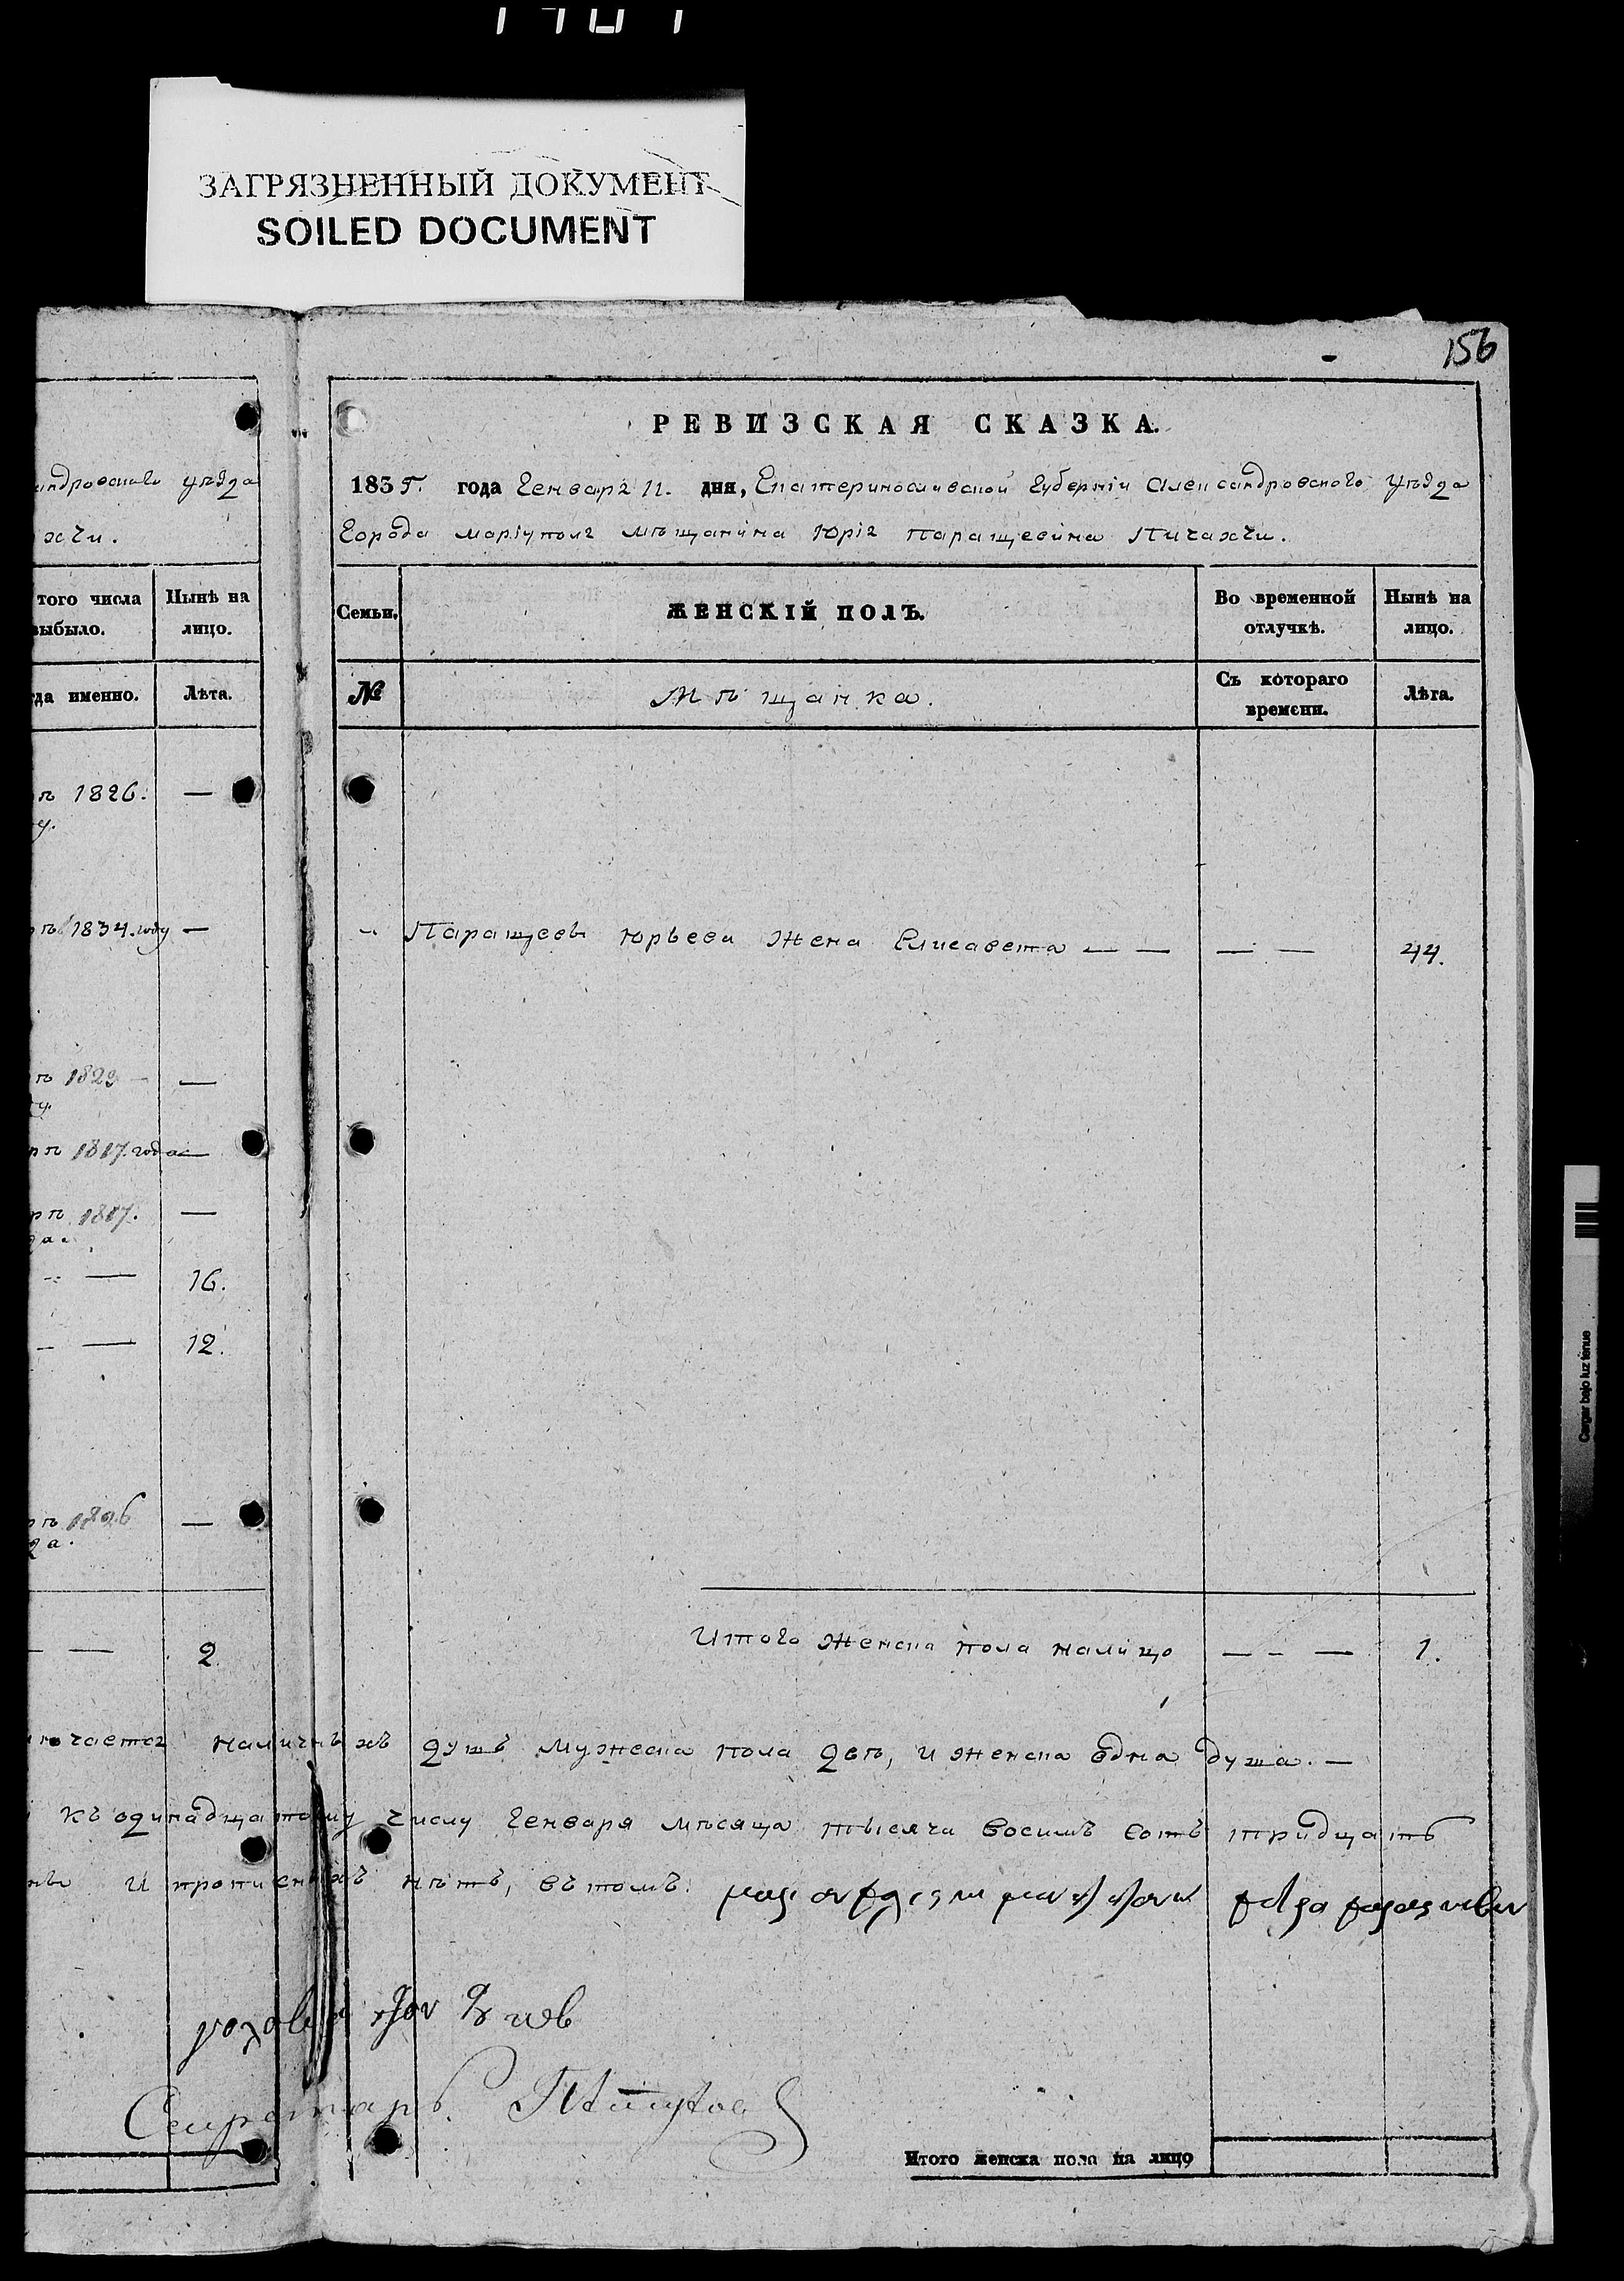 ЗАГРЯЗНЕННЫЙ ДОКУМЕНТ
SOILED DOCUMENT
156
андровскаго уѣзда
хчи.
того числа
выбыло.
Нынѣ на
лицо.
гда именно.
Лѣта.
1826. —
1834. году —
1829 — —
1817. года —
1817. —
— 16.
— 12.
1826 —
— 2
РЕВИЗСКАЯ СКАЗКА.
1835. года Генваря 11. дня, Екатеринославской Губерніи Александровскаго уѣзда
Города Маріуполя мѣщанина Юрія Паращевина Пичахчи.
Семьи.
ЖЕНСКІЙ ПОЛЪ.
Во временной
отлучкѣ.
Нынѣ на
лицо.
№
Мѣщанка.
Съ котораго
времени.
Лѣта.
Паращевы Юрьева жена Елисавета — — — — 44.
Итого женска пола налицо — - — 1.
чается наличныхъ душъ мужеска пола двѣ, и женска одна душа. —
къ одинадцатому числу Генваря мѣсяца тысяча восимъ сотъ тридцать
и прописныхъ нѣтъ, въ томъ
Секретарь
Итого женска пола на лицо
Cargar bajo luz tenue